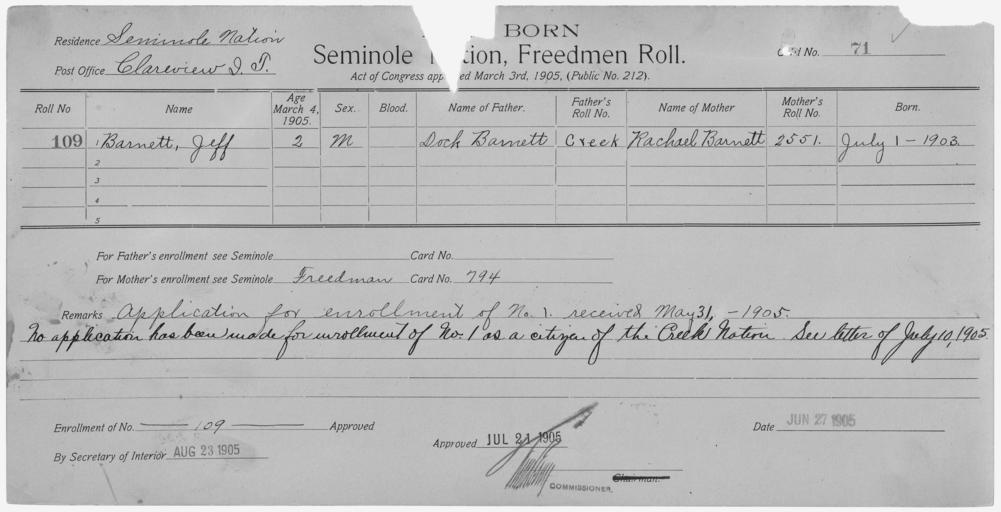 BORN
Residence Seminole Nation
Seminole tion, Freedmen Roll.
Card No. 71
Post Office Clareview I. T.
Act of Congress app ed March 3rd, 1905, (Public No. 212).
Roll No Name Age March 4, 1905. Sex. Blood. Name of Father. Father's Roll No. Name of Mother Mother's Roll No. Born.
109 1 Barnett, Jeff 2 M Dock Barnett Creek Rachael Barnett 2551. July 1 - 1903
2
3
4
5
For Father's enrollment see Seminole Card No.
For Mother's enrollment see Seminole Freedman Card No. 794
Remarks Application for enrollment of No. 1. received May 31, - 1905.
No application has been made for enrollment of No. 1 as a citizen of the Creek Nation. See letter of July 10, 1905
Enrollment of No. 109 Approved
Date JUN 27 1905
Approved JUL 21 1905
By Secretary of Interior AUG 23 1905
Chairman.
COMMISSIONER.